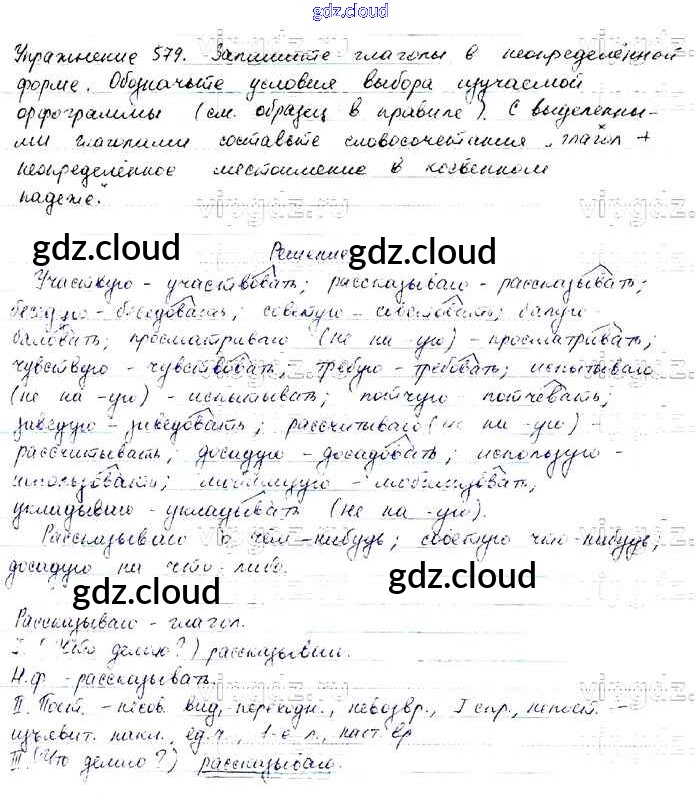 gdz.cloud
Упражнение 579. Запишите глаголы в неопределённой
форме. Обозначьте условия выбора изучаемой
орфограммы (см. образец в правиле). С выделенны-
ми глаголами составьте словосочетания „глагол +
неопределённое местоимение в косвенном
падеже".
gdz.cloud gdz.cloud
Решение
Участвую - участвовать; рассказываю - рассказывать;
беседую - беседовать; советую - советовать; балую -
баловать; просматриваю (не на -ую) - просматривать;
чувствую - чувствовать; требую - требовать; испытываю
(не на -ую) - испытывать; потчую - потчевать;
заведую - заведовать; рассчитываю (не на -ую) -
рассчитывать; досадую - досадовать; использую -
использовать; мобилизую - мобилизовать;
укладываю - укладывать (не на -ую).
Рассказываю о чём-нибудь; советую что-нибудь;
досадую на что-либо.
gdz.cloud gdz.cloud
Рассказываю - глагол.
I. (Что делаю?) рассказываю.
Н.ф - рассказывать.
II. Пост. - несов. вид, переходн., невозвр., I спр., непост. -
изъявит. накл., ед.ч., 1-е л., наст вр
III. (Что делаю?) рассказываю.
vipgdz.ru